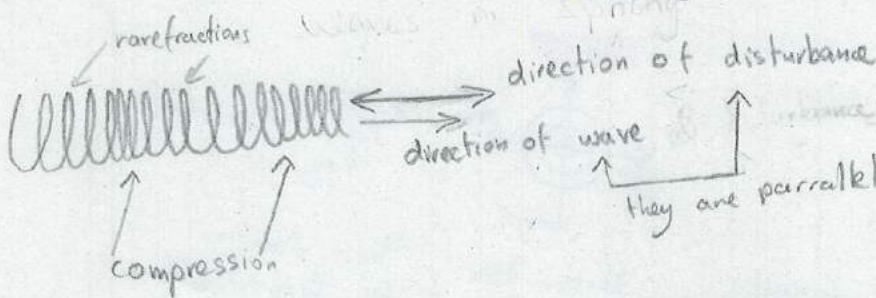 rarefractions
Waves in springs
direction of disturbance
direction of wave
they are parrallel
compression